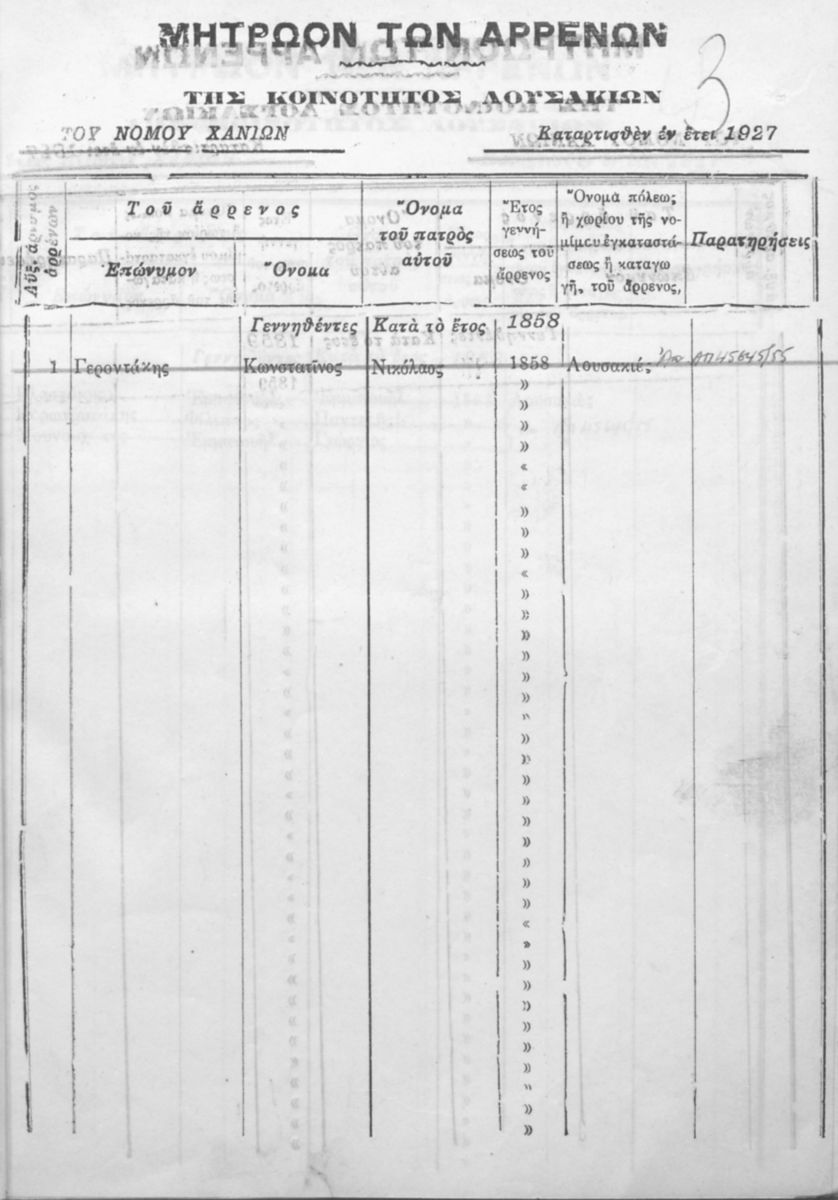 ΜΗΤΡΩΟΝ ΤΩΝ ΑΡΡΕΝΩΝ
3
ΤΗΣ ΚΟΙΝΟΤΗΤΟΣ ΛΟΥΣΑΚΙΩΝ
ΤΟΥ ΝΟΜΟΥ ΧΑΝΙΩΝ
Καταρτισθὲν ἐν ἔτει 1927
Τοῦ ἄρρενος
Ἐπώνυμον
Ὄνομα
Ὄνομα
τοῦ πατρὸς
αὐτοῦ
Ἔτος
γεννή-
σεως τοῦ
ἄρρενος
Ὄνομα πόλεως
ἢ χωρίου τῆς νο-
μίμου ἐγκαταστά-
σεως ἢ καταγω
γῆ, τοῦ ἄρρενος,
Παρατηρήσεις
Γεννηθέντες Κατὰ τὸ ἔτος 1858
1 Γεροντάκης Κωνστατῖνος Νικόλαος 1858 Λουσακιέ, ΑΠ45645/55
»
»
»
»
«
«
»
»
»
«
»
»
»
»
»
»
»
»
»
»
»
»
»
»
»
»
«
»
»
»
»
»
»
»
»
»
»